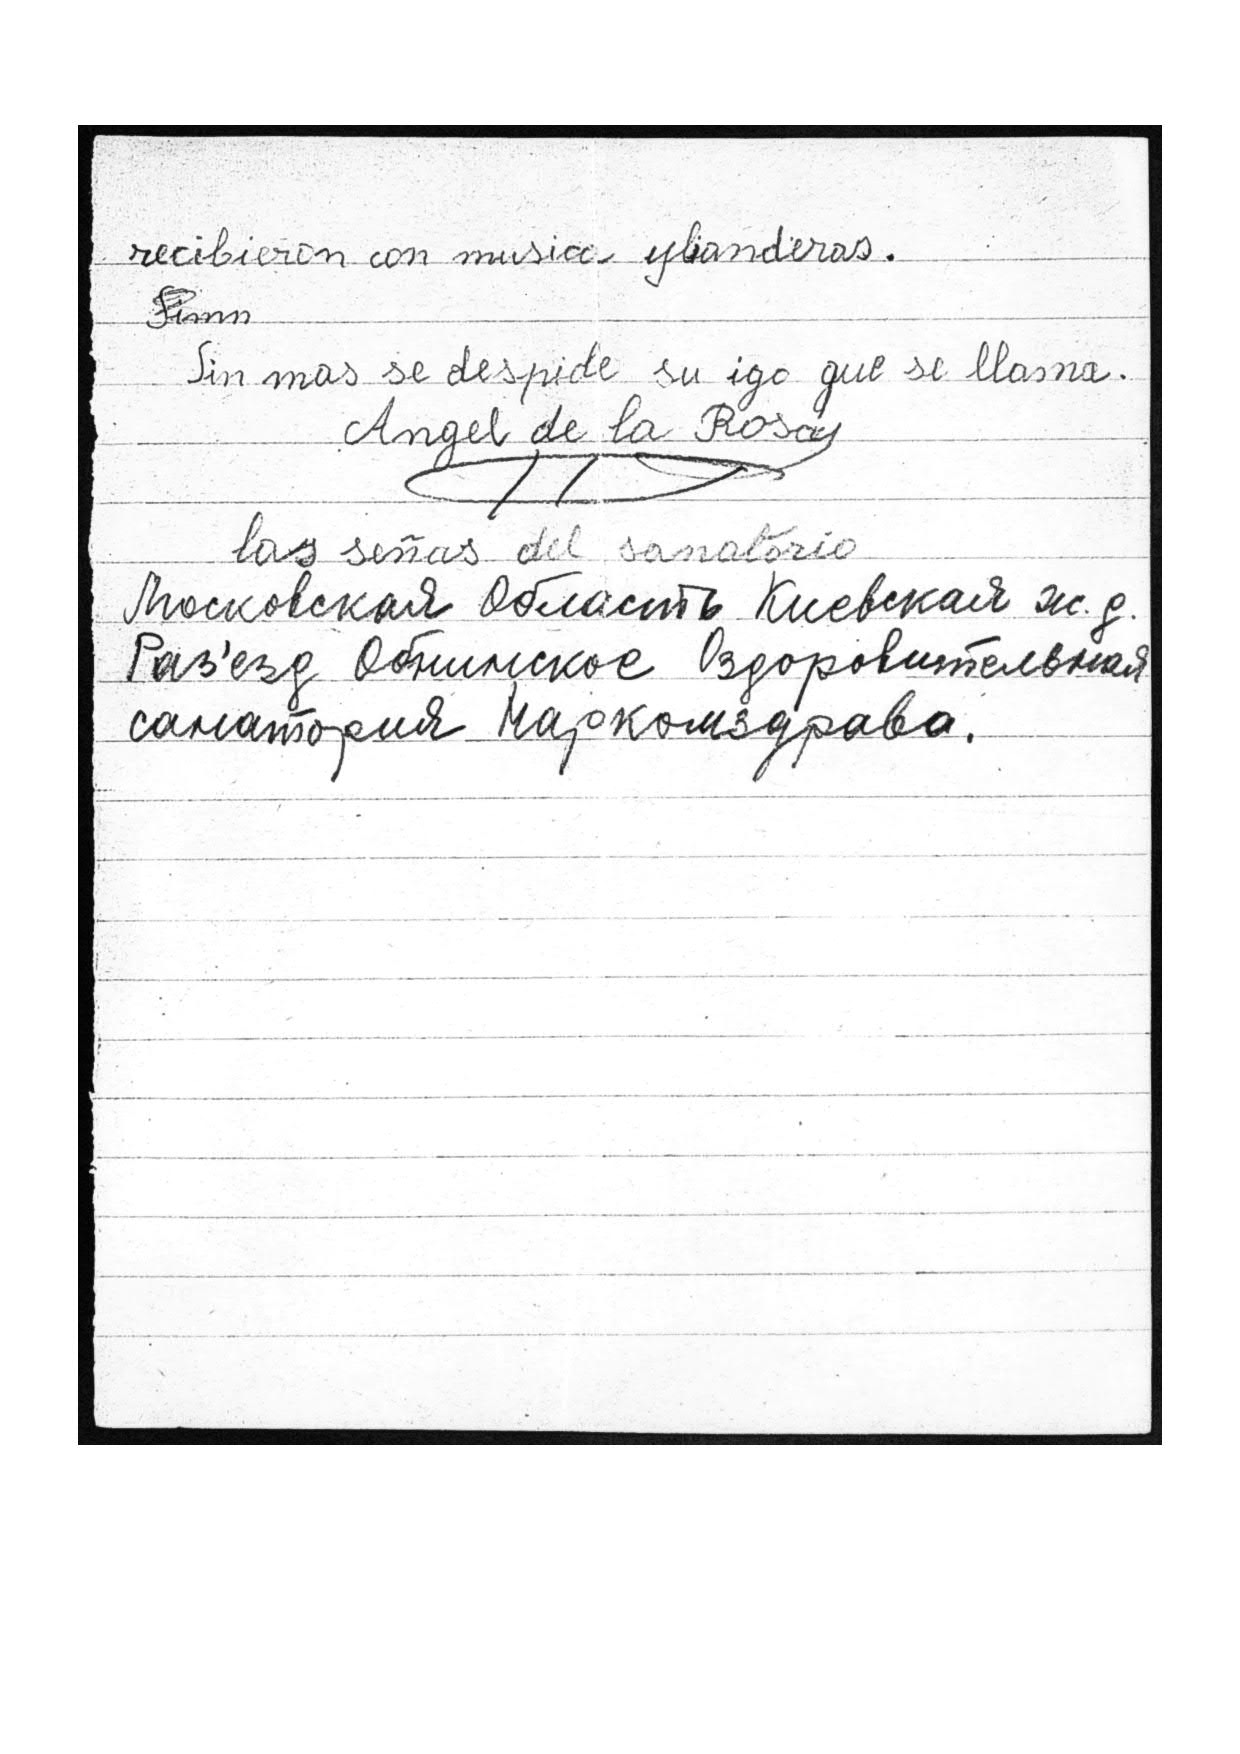 recibieron con musica y banderas.
Sin mas se despide su igo que se llama.
Angel de la Rosa
las señas del sanatorio
Московская Область Киевская ж.д.
Раз'езд Обнинское Оздоровительная
санатория Наркомздрава.